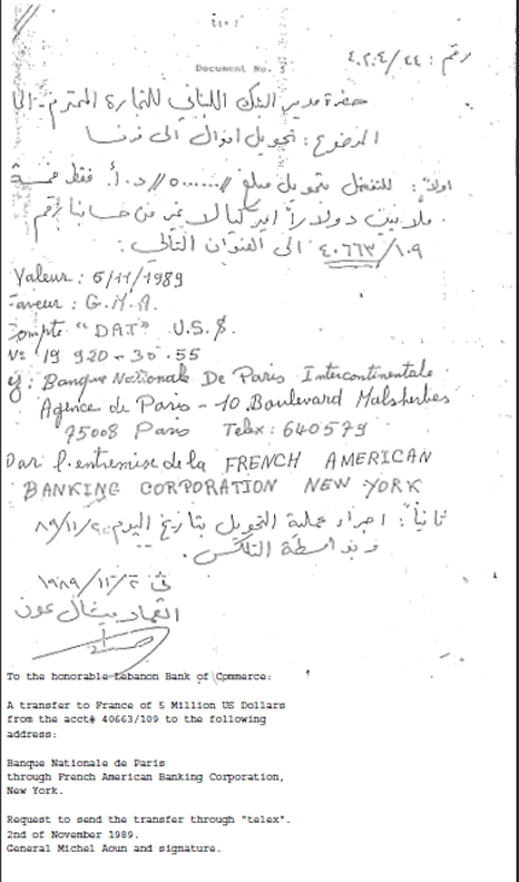 Document No. 3
رقم : ٤٠٢٠٤/٤٤
حضرة مدير البنك اللبناني للتجارة المحترم -
الموضوع : تحويل اموال الى فرنسا
اولاً : للتفضل بتحويل مبلغ //٥٠٠٠٠٠٠// د.أ. فقط خمسة
ملايين دولاراً اميركيا لا غير من حسابنا رقم
٤٠٦٦٣/١٠٩ الى العنوان التالي :
Valeur : 5/11/1989
Faveur : G.M.A.
Compte "DAT" U.S.$.
Nº 19 920-30.55
Banque Nationale De Paris Intercontinentale
Agence de Paris - 10 Boulevard Malsherbes
75008 Paris Telex : 640579
Par l'entremise de la FRENCH AMERICAN
BANKING CORPORATION NEW YORK
ثانياً : اجراء عملية التحويل بتاريخ اليوم ٨٩/١١/٢
وبواسطة التلكس .
في ١٩٨٩/١١/٢
العماد ميشال عون
To the honorable Lebanon Bank of Commerce:
A transfer to France of 5 Million US Dollars
from the acct# 40663/109 to the following
address:
Banque Nationale de Paris
through French American Banking Corporation,
New York.
Request to send the transfer through "telex".
2nd of November 1989.
General Michel Aoun and signature.